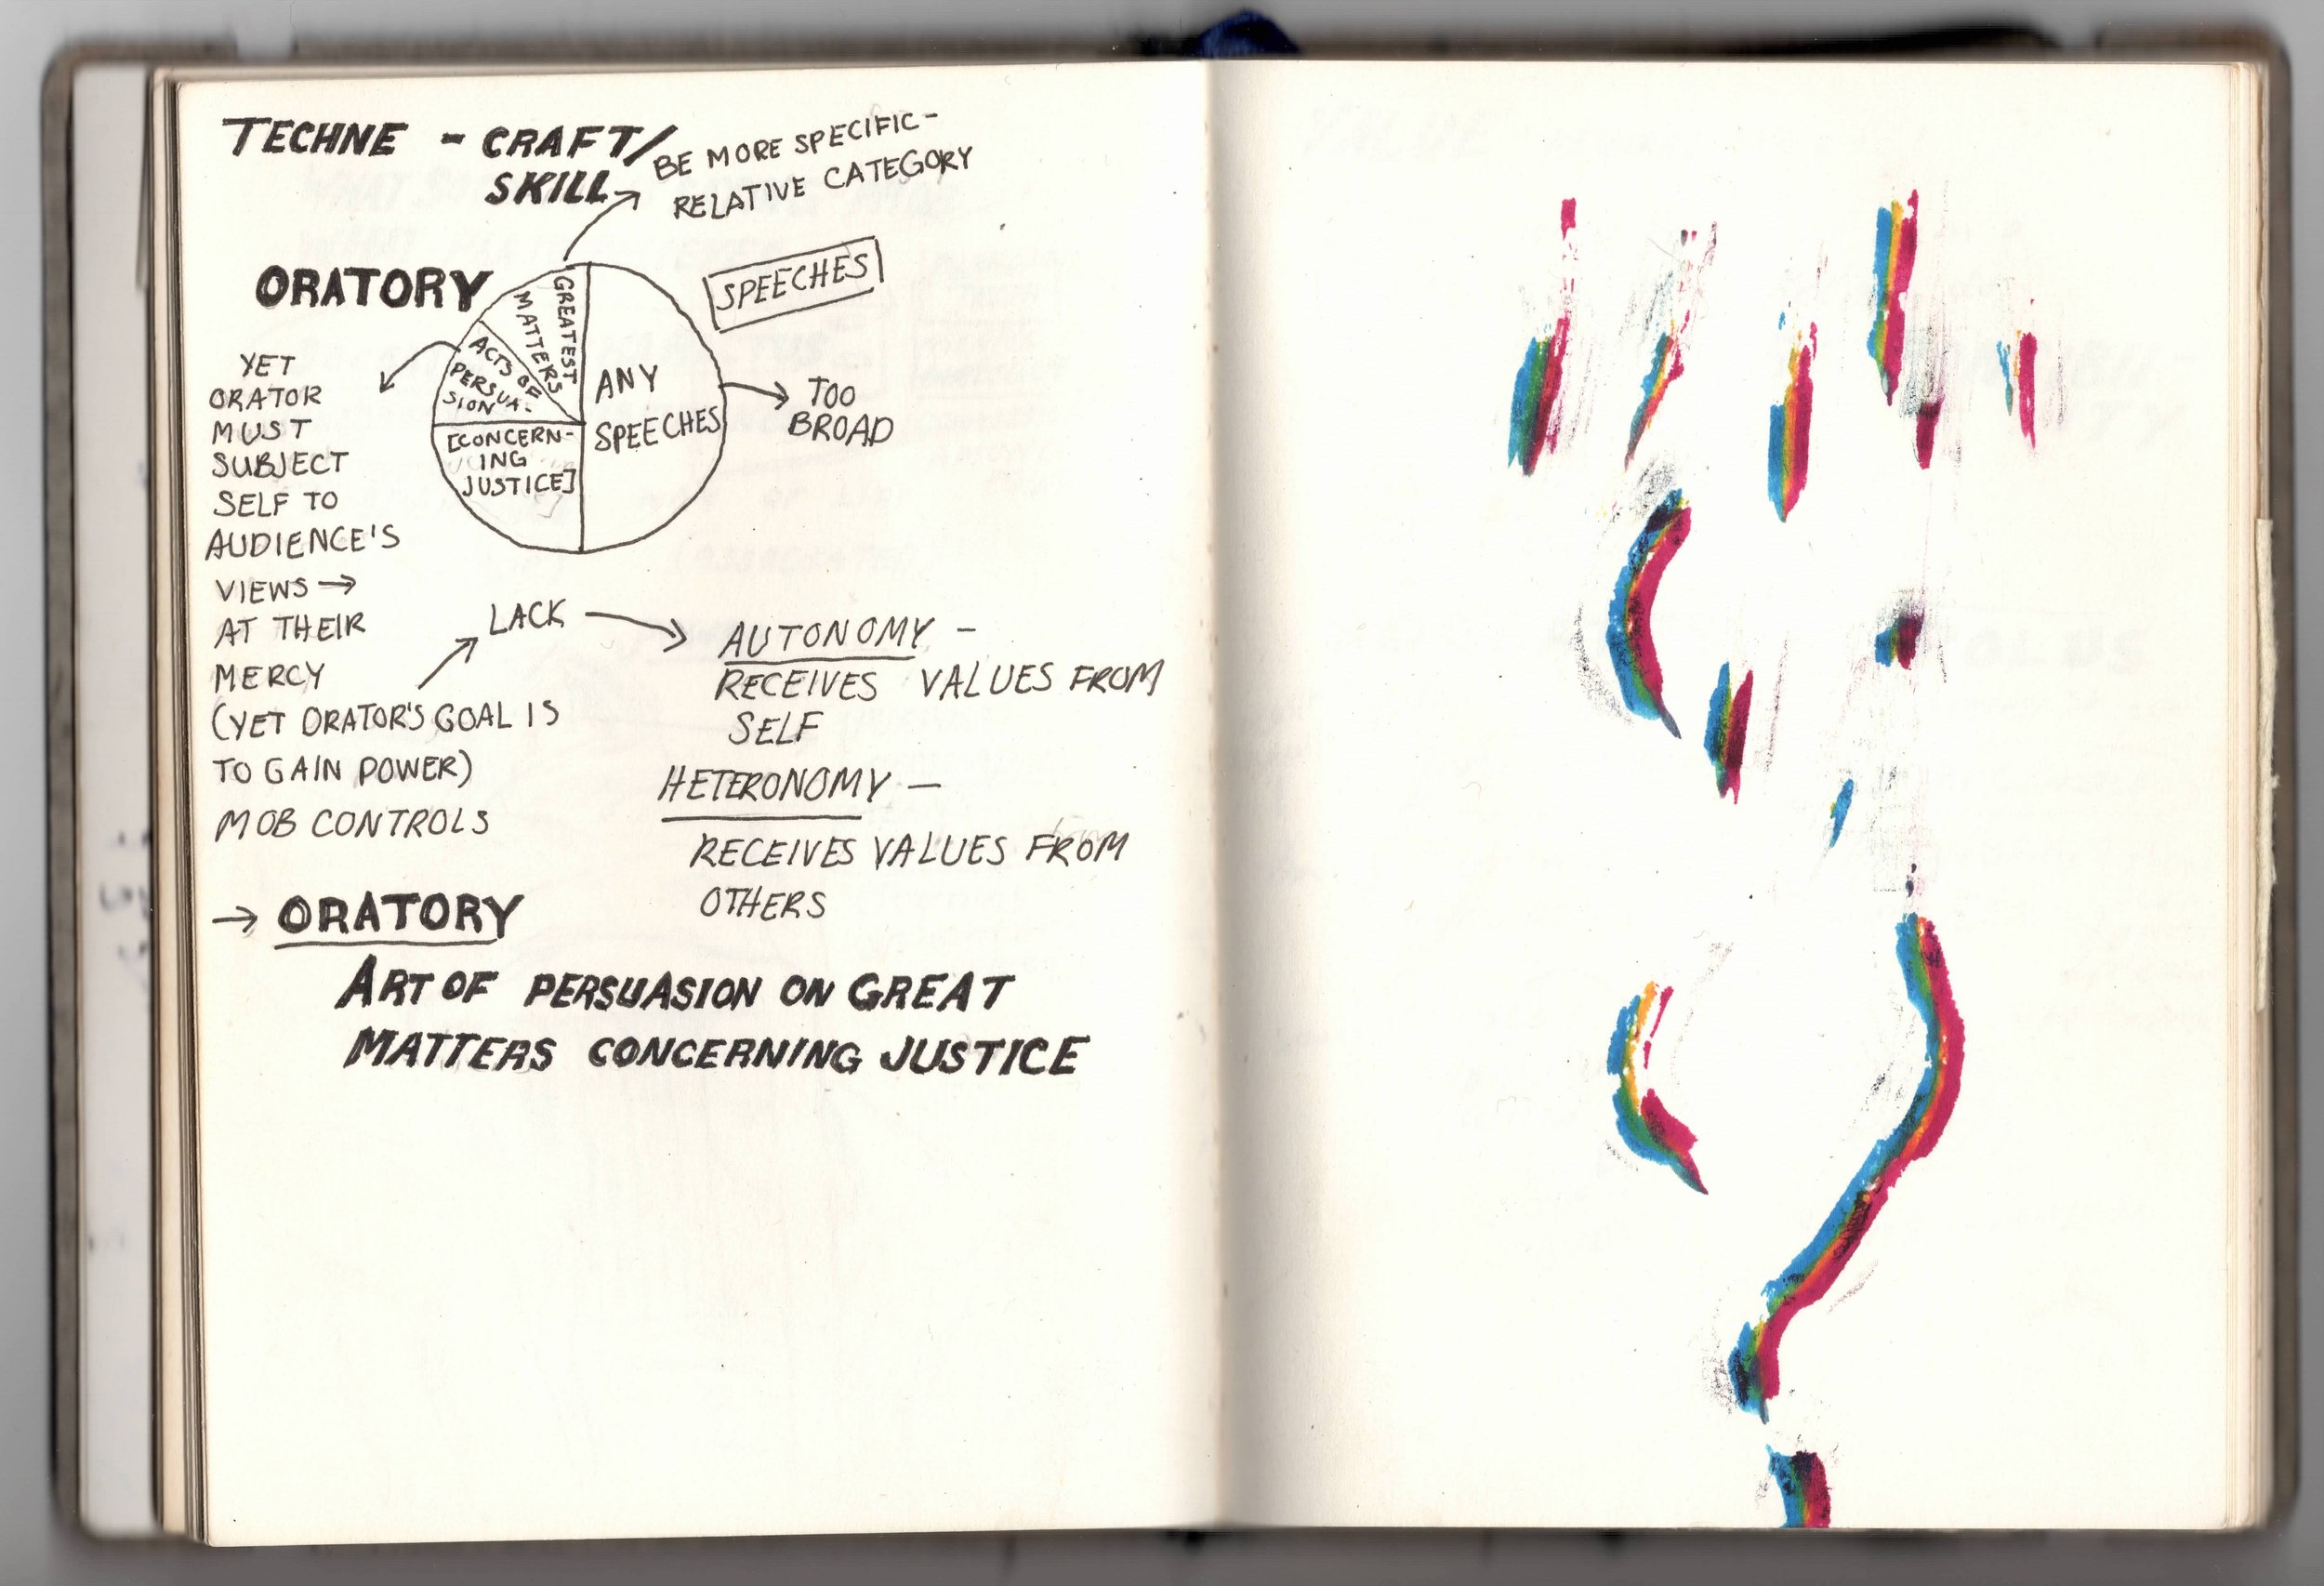 TECHNE - CRAFT/
SKILL
BE MORE SPECIFIC-
RELATIVE CATEGORY
ORATORY
SPEECHES
GREATEST
MATTERS
ACTS OF
PERSUA-
SION
[CONCERN-
ING
JUSTICE]
ANY
SPEECHES
TOO
BROAD
YET
ORATOR
MUST
SUBJECT
SELF TO
AUDIENCE'S
VIEWS →
AT THEIR
MERCY
(YET ORATOR'S GOAL IS
TO GAIN POWER)
MOB CONTROLS
LACK
AUTONOMY -
RECEIVES VALUES FROM
SELF
HETERONOMY -
RECEIVES VALUES FROM
OTHERS
→ ORATORY
ART OF PERSUASION ON GREAT
MATTERS CONCERNING JUSTICE